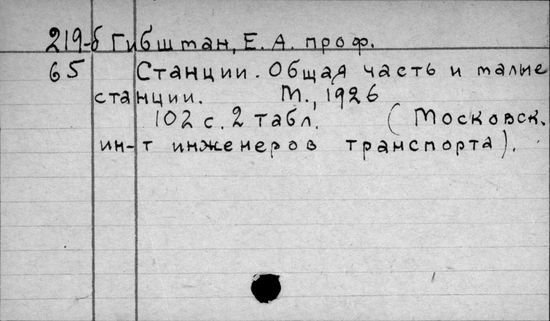 219-б Гибштан, Е. А. проф.
65 Станции. Общая часть и малые
станции. М., 1926
102 с. 2 табл. (Московск.
ин-т инженеров транспорта).